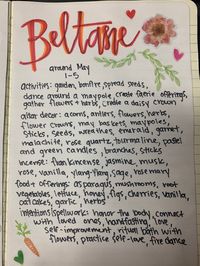 Beltane
around May
1-5
activities: garden, bonfire, spread seeds,
dance around a maypole, create faerie offerings,
gather flowers + herbs, create a daisy crown
altar decor: acorns, antlers, flowers, herbs,
flower crowns, may baskets, maypoles,
sticks, seeds, wreathes, emerald, garnet,
malachite, rose quartz, tourmaline, pastel
and green candles, branches, sticks
incense: frankincense, jasmine, musk,
rose, vanilla, ylang-ylang, sage, rosemary
food + offerings: asparagus, mushrooms, root
vegetables, lettuce, honey, figs, cherries, vanilla,
oatcakes, garlic, herbs
intentions/spellwork: honor the body, connect
with loved ones, handfasting, love
self-improvement, ritual bath with
flowers, practise self-love, fire dance